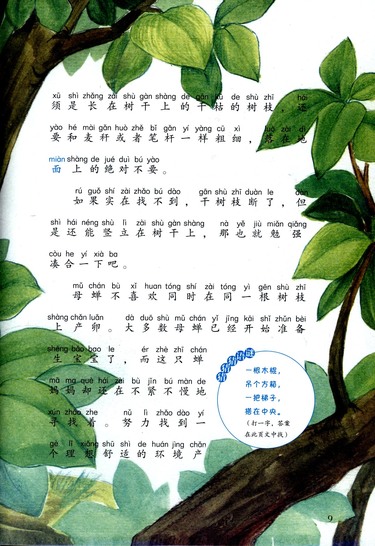 xū shì zhǎng zài shù gàn shàng de gān kū de shù zhī hái
须是长在树干上的干枯的树枝，还
yào hé mài gǎn huò zhě bǐ gǎn yí yàng cū xì luò zài dì
要和麦秆或者笔杆一样粗细，落在地
miàn shàng de jué duì bú yào
面上的绝对不要。
rú guǒ shí zài zhǎo bú dào gān shù zhī duàn le dàn
如果实在找不到，干树枝断了，但
shì hái néng shù lì zài shù gàn shàng nà yě jiù miǎn qiǎng
是还能竖立在树干上，那也就勉强
còu he yí xià ba
凑合一下吧。
mǔ chán bù xǐ huan tóng shí zài tóng yì gēn shù zhī
母蝉不喜欢同时在同一根树枝
shàng chǎn luǎn dà duō shù mǔ chán yǐ jīng kāi shǐ zhǔn bèi
上产卵。大多数母蝉已经开始准备
shēng bǎo bao le ér zhè zhī chán
生宝宝了，而这只蝉
mā ma què hái zài bù jǐn bú màn de
妈妈却还在不紧不慢地
xún zhǎo zhe nǔ lì zhǎo dào yí
寻找着。努力找到一
gè lǐ xiǎng shū shì de huán jìng chǎn
个理想舒适的环境产
猜猜猜谜
一根木棍，
吊个方箱，
一把梯子，
搭在中央。
（打一字，答案
在此页文中找）
9